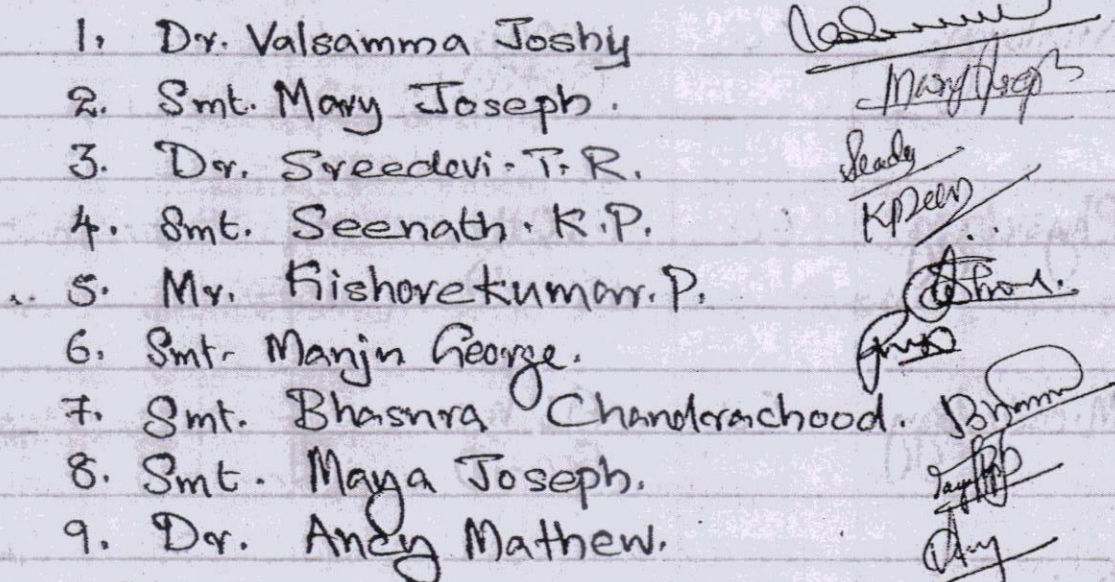 1. Dr. Valsamma Joshy
2. Smt. Mary Joseph. Mary Joseph
3. Dr. Sreedevi. T. R.
4. Smt. Seenath. K. P.
5. Mr. Kishorekumar. P.
6. Smt. Manju George.
7. Smt. Bhasura Chandrachood.
8. Smt. Maya Joseph.
9. Dr. Andy Mathew.